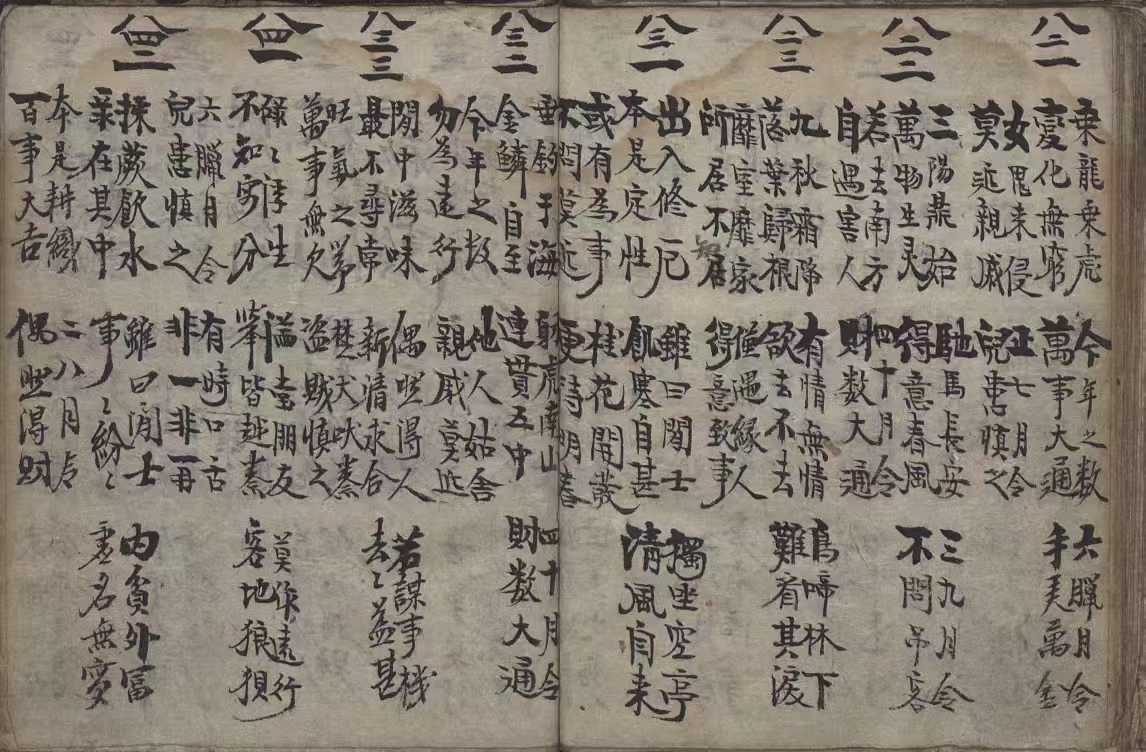 八二一
乘龍乘虎
變化無窮
女鬼来侵
莫近親戚
今年之数
萬事大通
正七月令
兒患慎之
六臘月令
手弄萬金
八二二
三陽暴始
萬物生灵
若去南方
自遇害人
馳馬長安
得意春風
四十月令
財数大通
三九月令
不問吊客
八二三
九秋霜降
落葉歸根
靡室靡家
所居不知居
有情無情
欲去不去
僅遇緣人
得意致事
鳥啼林下
難看其淚
八三一
出入修厄
本是定性
或有為事
不問莫近
雖曰閒士
飢寒自甚
桂花開發
更待明春
獨坐空亭
清風自来
八三二
垂釣于海
金鱗自至
今年之数
勿為遠行
射虎南山
連貫五中
他人姑舍
親戚莫近
四十月令
財数大通
八三三
閒中滋味
最不尋常
旺氣之第
萬事無欠
偶然得人
新情求合
楚犬吠秦
盜賊慎之
若謀事機
去〻益甚
八四一
碌〻浮生
不知安分
六臘月令
兒患慎之
滿堂朋友
举皆越秦
有時口舌
非一非再
莫作遠行
客地狼狽
八四二
採蕨飲水
樂在其中
本是耕織
一百事大吉
雖曰閒士
事〻紛〻
二八月令
偶然得財
内貧外冨
虛名無實